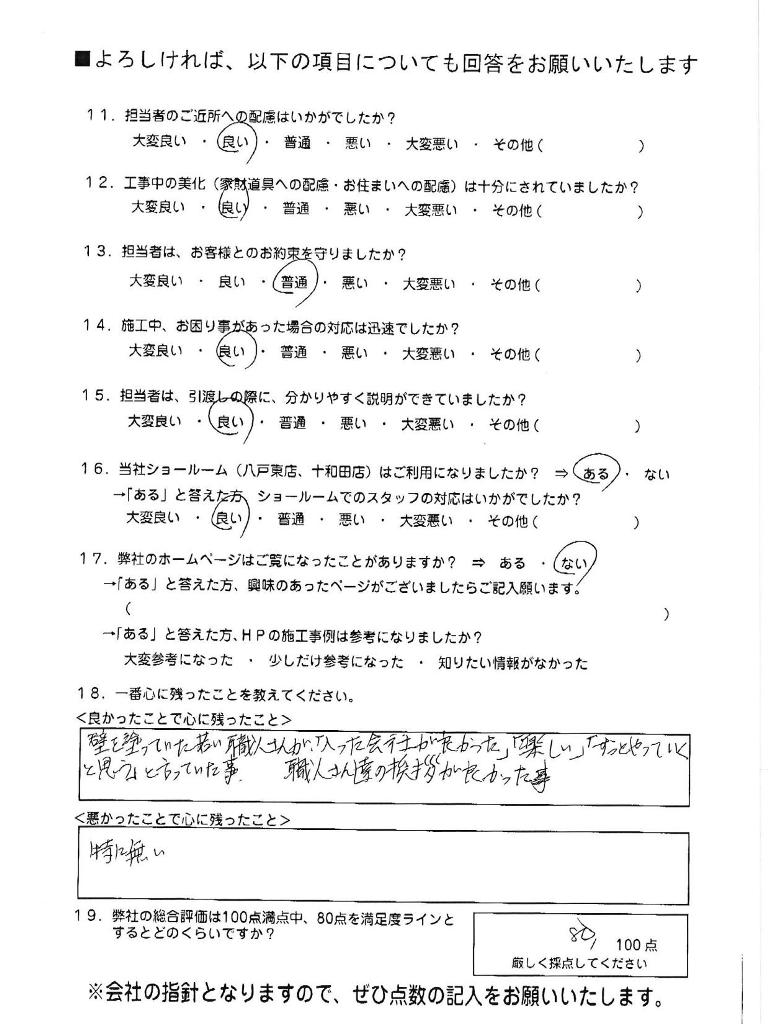 ■よろしければ、以下の項目についても回答をお願いいたします
11．担当者のご近所への配慮はいかがでしたか？
大変良い ・ 良い ・ 普通 ・ 悪い ・ 大変悪い ・ その他（　　　　　　）
12．工事中の美化（家財道具への配慮・お住まいへの配慮）は十分にされていましたか？
大変良い ・ 良い ・ 普通 ・ 悪い ・ 大変悪い ・ その他（　　　　　　）
13．担当者は、お客様とのお約束を守りましたか？
大変良い ・ 良い ・ 普通 ・ 悪い ・ 大変悪い ・ その他（　　　　　　）
14．施工中、お困り事があった場合の対応は迅速でしたか？
大変良い ・ 良い ・ 普通 ・ 悪い ・ 大変悪い ・ その他（　　　　　　）
15．担当者は、引渡しの際に、分かりやすく説明ができていましたか？
大変良い ・ 良い ・ 普通 ・ 悪い ・ 大変悪い ・ その他（　　　　　　）
16．当社ショールーム（八戸東店、十和田店）はご利用になりましたか？ ⇒ ある ・ ない
→「ある」と答えた方、ショールームでのスタッフの対応はいかがでしたか？
大変良い ・ 良い ・ 普通 ・ 悪い ・ 大変悪い ・ その他（　　　　　　）
17．弊社のホームページはご覧になったことがありますか？ ⇒ ある ・ ない
→「ある」と答えた方、興味のあったページがございましたらご記入願います。
（　　　　　　）
→「ある」と答えた方、HPの施工事例は参考になりましたか？
大変参考になった ・ 少しだけ参考になった ・ 知りたい情報がなかった
18．一番心に残ったことを教えてください。
＜良かったことで心に残ったこと＞
壁を塗っていた若い職人さんが、「入った会社が良かった」「楽しい」「ずっとやっていく
と思う」と言っていた事　職人さん達の挨拶が良かった事
＜悪かったことで心に残ったこと＞
特に無い
19．弊社の総合評価は100点満点中、80点を満足度ラインと
するとどのくらいですか？
80/100点
厳しく採点してください
※会社の指針となりますので、ぜひ点数の記入をお願いいたします。